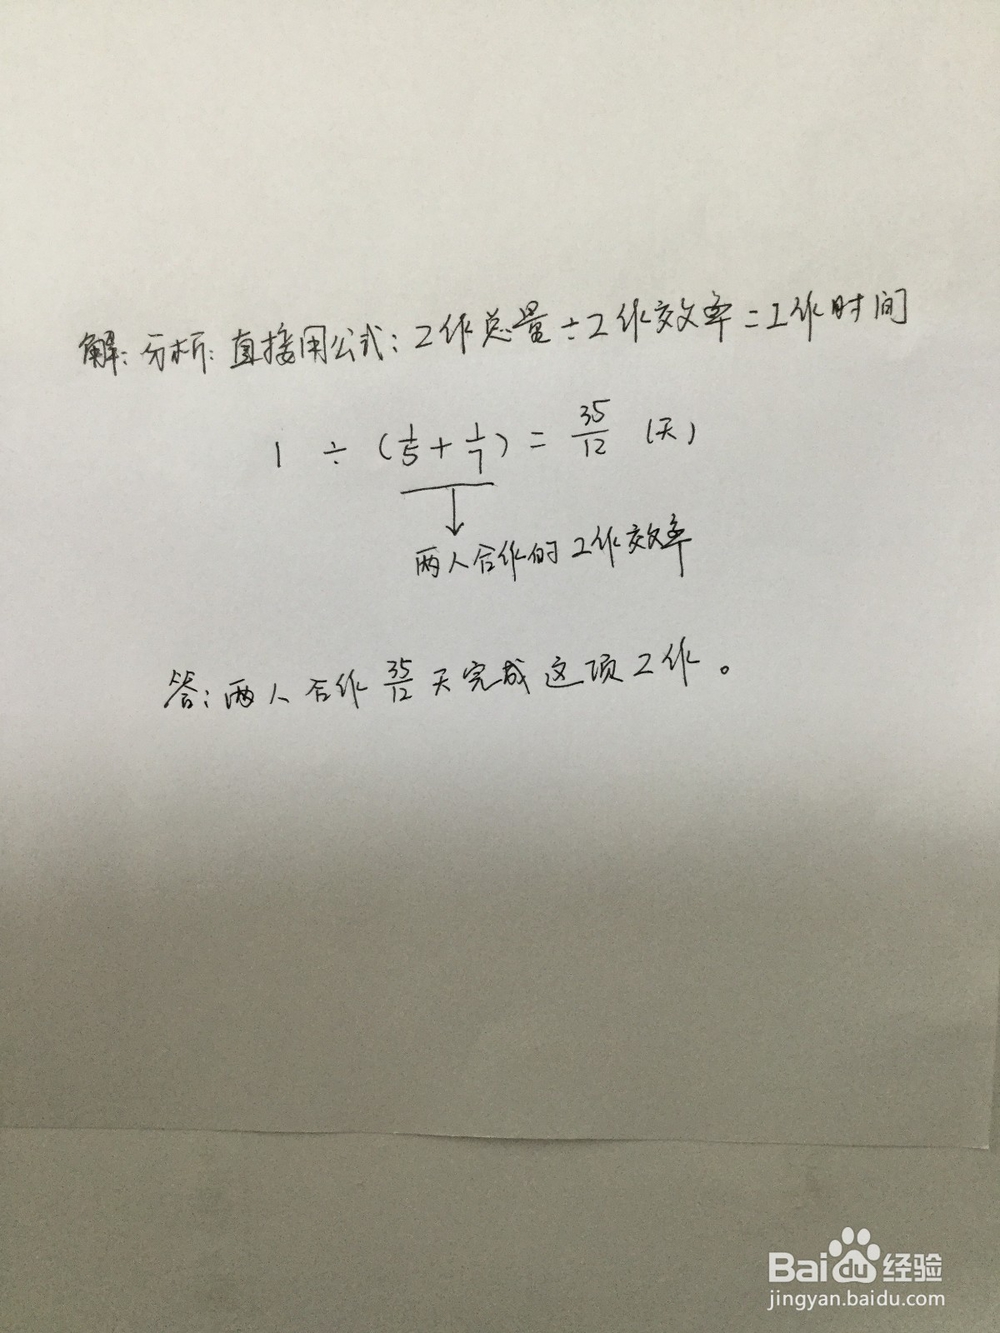 解：分析：直接用公式：工作总量÷工作效率=工作时间
1 ÷ (1/5 + 1/7) = 35/12 (天)
两人合作的工作效率
答：两人合作 35/12 天完成这项工作。
Baidu经验
jingyan.baidu.com